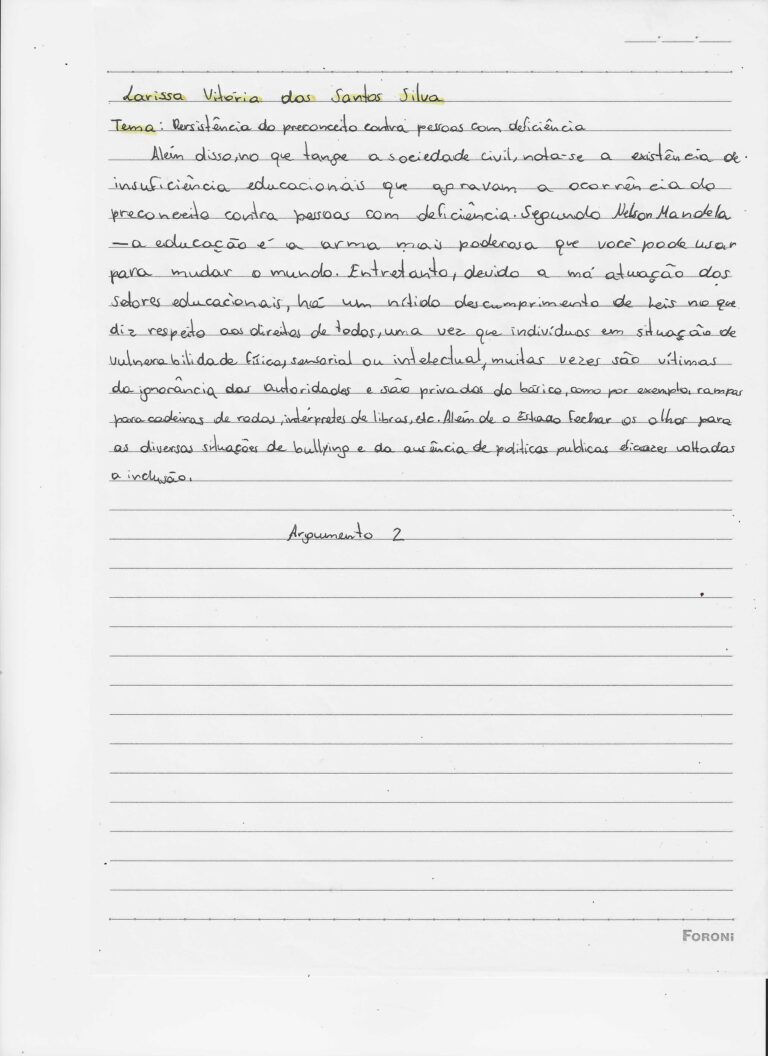 Larissa Vitória dos Santos Silva
Tema: Persistência do preconceito contra pessoas com deficiência
Além disso, no que tange a sociedade civil, nota-se a existência de
insuficiência educacionais que agravam a ocorrência do
preconceito contra pessoas com deficiência. Segundo Nelson Mandela
— a educação é a arma mais poderosa que você pode usar
para mudar o mundo. Entretanto, devido a má atuação dos
setores educacionais, há um nítido descumprimento de Leis no que
diz respeito aos direitos de todos, uma vez que indivíduos em situação de
vulnerabilidade física, sensorial ou intelectual, muitas vezes são vítimas
da ignorância das autoridades e são privados do básico, como por exemplo, rampas
para cadeiras de rodas, intérpretes de libras, etc. Além de o Estado Fechar os olhos para
as diversas situações de bullying e da ausência de políticas publicas eficazes voltadas
a inclusão.
Argumento 2
FORONI